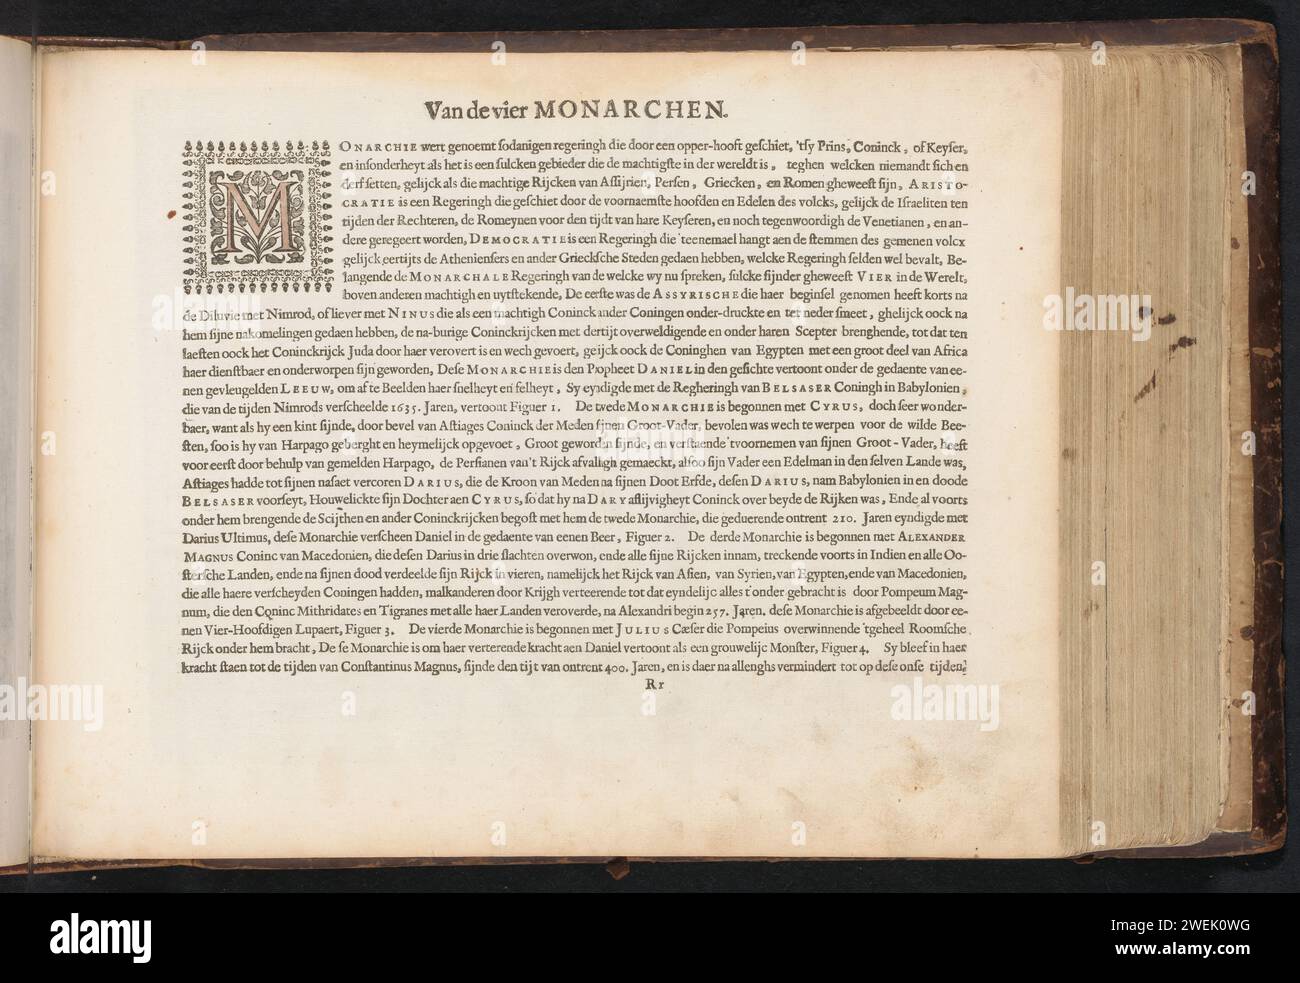 Van de vier MONARCHEN.
MONARCHIE wert genoemt sodanigen regeringh die door een opper-hooft geschiet, 'tsy Prins, Coninck, of Keyser,
en insonderheyt als het is een sulcken gebieder die de machtigste in der wereldt is, teghen welcken niemandt sich en
derf setten, gelijck als die machtige Rijcken van Assijrien, Persen, Griecken, en Romen gheweest sijn, ARISTO-
CRATIE is een Regeringh die geschiet door de voornaemste hoofden en Edelen des volcks, gelijck de Israeliten ten
tijden der Rechteren, de Romeynen voor den tijdt van hare Keyseren, en noch tegenwoordigh de Venetianen, en an-
dere geregeert worden, DEMOCRATIE is een Regeringh die 'teenemael hangt aen de stemmen des gemenen volcx
gelijck eertijts de Atheniensers en ander Grieksche Steden gedaen hebben, welcke Regeringh selden wel bevalt, Be-
langende de MONARCHALE Regeringh van de welcke wy nu spreken, sulcke sijnder gheweest VIER in de Werelt,
boven anderen machtigh en uytstekende, De eerste was de ASSYRISCHE die haer beginsel genomen heeft korts na
de Diluvie met Nimrod, of liever met NINUS die als een machtigh Coninck ander Coningen onder-druckte en ter neder smeet, ghelijck oock na
hem sijne nakomelingen gedaen hebben, de na-burige Coninckrijcken met dertijt overweldigende en onder haren Scepter brenghende, tot dat ten
laesten oock het Coninckrijck Juda door haer verovert is en wech gevoert, gelijck oock de Coninghen van Egypten met een groot deel van Africa
haer dienstbaer en onderworpen sijn geworden, Dese MONARCHIE is den Propheet DANIEL in den gesichte vertoont onder de gedaente van ee-
nen gevleugelden LEEUW, om af te Beelden haer snelheyt en felheyt, Sy eyndigde met de Regheringh van BELSASER Coningh in Babylonien,
die van de tijden Nimrods verscheelde 1635. Jaren, vertoont Figuer 1. De twede MONARCHIE is begonnen met CYRUS, doch seer wonder-
baer, want als hy een kint sijnde, door bevel van Astiages Coninck der Meden sijnen Groot-Vader, bevolen was wech te werpen voor de wilde Bee-
sten, soo is hy van Harpago geberght en heymelijck opgevoet, Groot geworden sijnde, en verstaende 'tvoornemen van sijnen Groot-Vader, heeft
voor eerst door behulp van gemelden Harpago, de Persianen van't Rijck afvalligh gemaeckt, alsoo sijn Vader een Edelman in den selven Lande was,
Astiages hadde tot sijnen nasaet vercoren DARIUS, die de Kroon van Meden na sijnen Doot Erfde, desen DARIUS, nam Babylonien in en doode
BELSASER voorseyt, Houwelickte sijn Dochter aen CYRUS, so dat hy na DARY aflijvigheyt Coninck over beyde de Rijken was, Ende al voorts
onder hem brengende de Scijthen en ander Coninckrijcken begost met hem de twede Monarchie, die geduerende ontrent 210. Jaren eyndigde met
Darius Ultimus, dese Monarchie verscheen Daniel in de gedaente van eenen Beer, Figuer 2. De derde Monarchie is begonnen met ALEXANDER
MAGNUS Coninc van Macedonien, die desen Darius in drie slachten overwon, ende alle sijne Rijcken innam, treckende voorts in Indien en alle Oo-
stersche Landen, ende na sijnen dood verdeelde sijn Rijck in vieren, namelijck het Rijck van Asien, van Syrien, van Egypten, ende van Macedonien,
die alle haere verscheyden Coningen hadden, malkanderen door Krijgh verteerende tot dat eyndelijc alles t'onder gebracht is door Pompeum Mag-
num, die den Coninc Mithridates en Tigranes met alle haer Landen veroverde, na Alexandri begin 257. Jaren. dese Monarchie is afgebeeldt door ee-
nen Vier-Hoofdigen Lupaert, Figuer 3. De vierde Monarchie is begonnen met JULIUS Cæser die Pompeius overwinnende 'tgeheel Roomsche
Rijck onder hem bracht, De se Monarchie is om haer verterende kracht aen Daniel vertoont als een grouwelijc Monster, Figuer 4. Sy bleef in haer
kracht staen tot de tijden van Constantinus Magnus, sijnde den tijt van ontrent 400. Jaren, en is daer na allenghs vermindert tot op dese onse tijden.
Rr
alamy
Image ID: 2WEK0WG
www.alamy.com